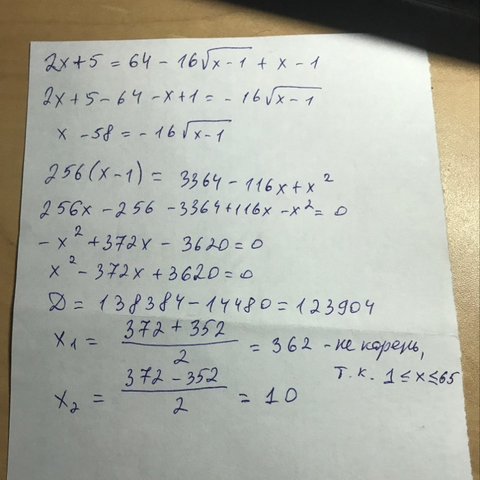 2x+5 = 64 - 16√x-1 + x - 1
2x+5-64-x+1 = -16√x-1
x - 58 = -16√x-1
256(x-1) = 3364 - 116x + x²
256x - 256 - 3364 + 116x - x² = 0
-x² + 372x - 3620 = 0
x² - 372x + 3620 = 0
D = 138384 - 14480 = 123904
x₁ = (372 + 352)/2 = 362 - не корень,
т.к. 1 ≤ x ≤ 65
x₂ = (372 - 352)/2 = 10